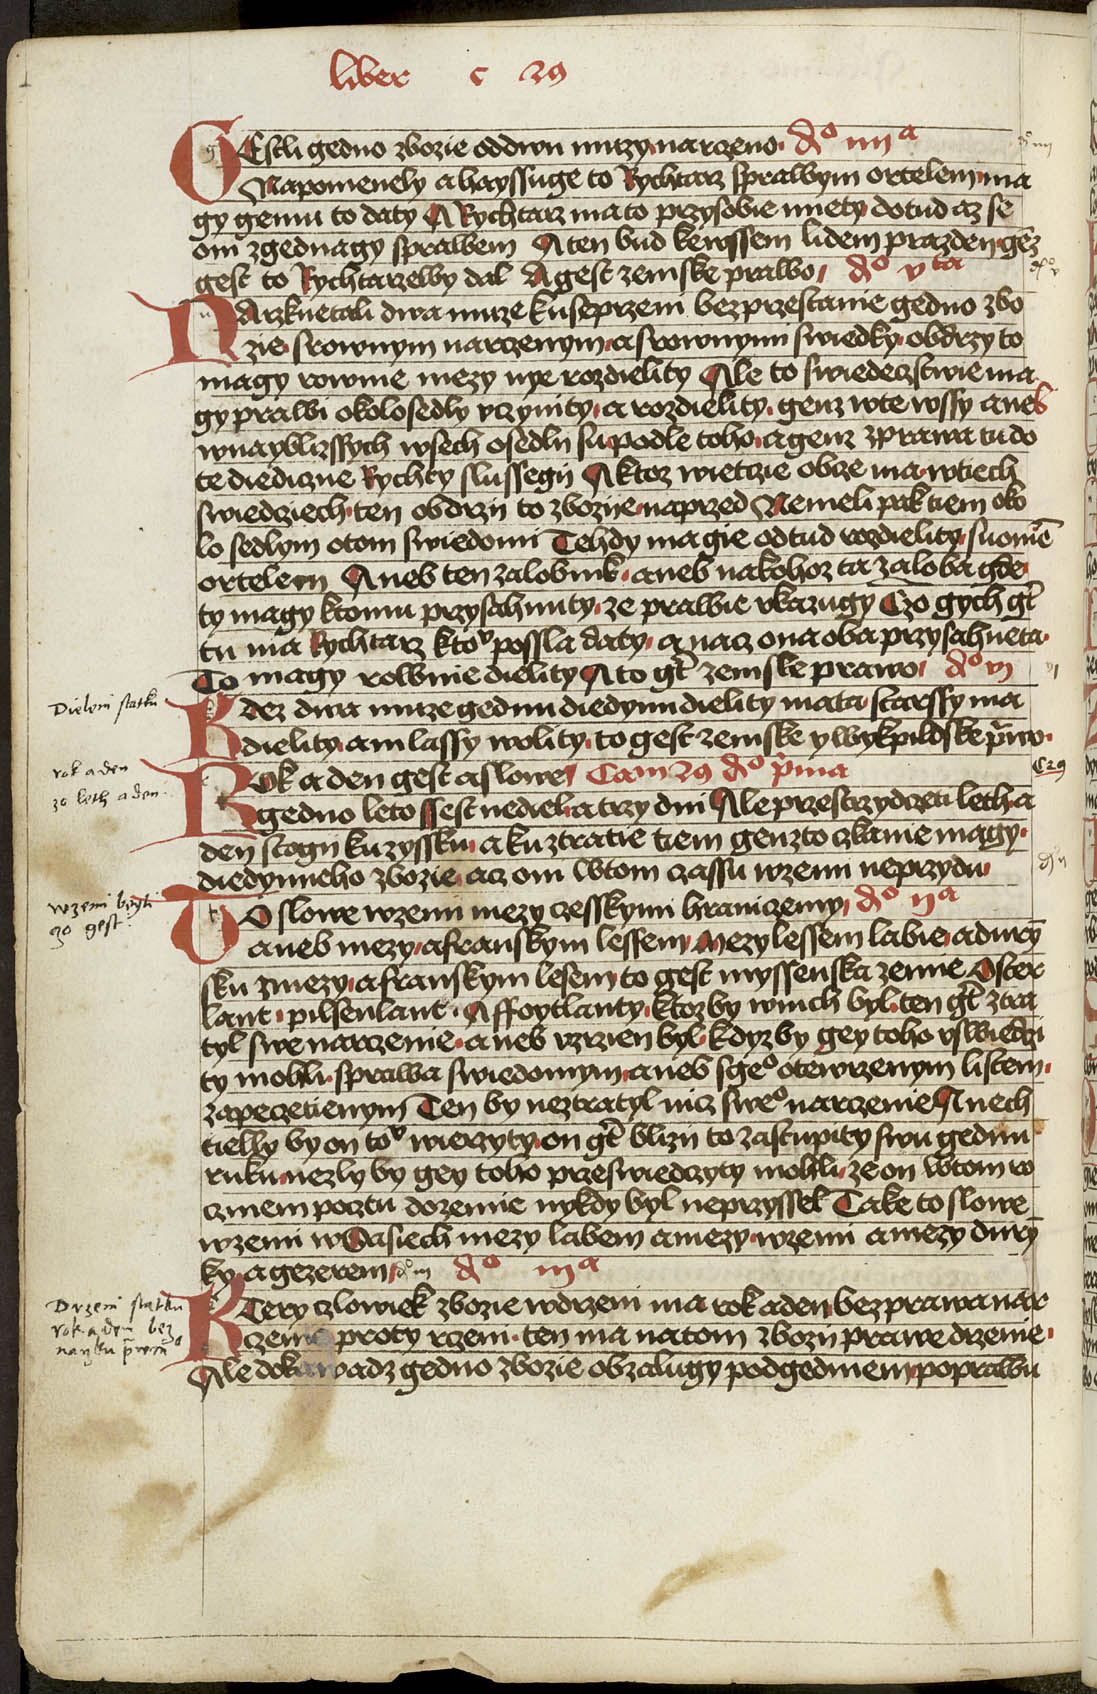 liber c 29
GEstli gedno zbozie oddwu muzy narczeno · do iiii a
Napomenely a hayssuge to Rychtarz sprawym ortelem ma
gy gemu to daty A Rychtarz ma to przysobie miety dotud az se
oni zgednagy sprawem A ten bud kewssem lidem prazden gez
gest to Rychtarzewy dal A gest zemske prawo · do v ta
NArzknetali dwa muze kuseprzem bezprzestanie gedno zbo
zie srownym narczenym a srownymi swiedky obdrzy to
magy rownie mezy nye rozdielity Ale to swiedeczstwie ma
gy prawi okolosedly vczynity a rozdielity genz wte wssy aneb
wnayblizssych wsech osedlii su podle toho a genz zprawa tu do
te diediczne Rychty slussegii A ktoz wietczie obcze ma wtiech
swiedcziech ten obdrzii to zbozije naprzed Nemeli pak tiem oko
lo sedlym otom swiedomi Tehdy ma gie odtud rozdielity suomē
ortelem Aneb ten zalobnik aneb nakohoz ta zaloba gde
ty magy ktomu przysahnuty ze prawie vkazugy Czo gych gt
tu ma Rychtarz kto possla daty a nacz ona oba przysahneta
To magy rownie dielity A to gt zemske prawo do vi
Dieleni statku
KDez dwa muze gednu diedynu dielity mata starssy ma
dielity a mlassy wolity to gest zemske y wykpildske prwo
rok a den
30 leth a den
ROk a den gest a slowe Cam 29 do pma
C29
gedno leto ssest nediel a trzy dni Ale przestrzydczeti leth a
den stogii kuzyssku a kuztratie tiem genzto czlanie magy
diedynneho zbozie acz oni wtom czassu wzemi neprzydu
wzemi bayti
czo gest
TO slowe wzemi mezy czesskymi hraniczemy do ii a
aneb mezy afranskym lessem mezy lessem labie a dury
sku zmezy afranskym lesem to gest myssenska zemie Oster
lant · pilsenlant · A ffoytlanty ktoz by wnich byl ten gt ztra
tyl swe narczenie aneb vzrzien byl kdyz by gey toho vswiedczi
ty mohli sprawa swiedomym aneb sgeo otewrzenym listem
zapeczetienym Ten by neztratyl nicz sweo narczenie A nech
tielly by on tov wierzyty on gt blizii to zastupity swu gednu
ruku nezly by gey toho przeswiedczyty mohli ze on wtom w
czinem pocztu dozemie nykdy byl neprzyssel Take to slowe
wzemi wSasiech mezy labem a mezy wzemi a mezy dury
ky a gezerem do iii a
Drzeni statku
rok a den bez
KTery czlowiek zbozie wdrzeni ma rok a den bez prawa nar
czenie proty rzeni ten ma natom zbozii prawe drzenie
Ale dokawadz gedno zbozie obzalugy podgedniem poprawu